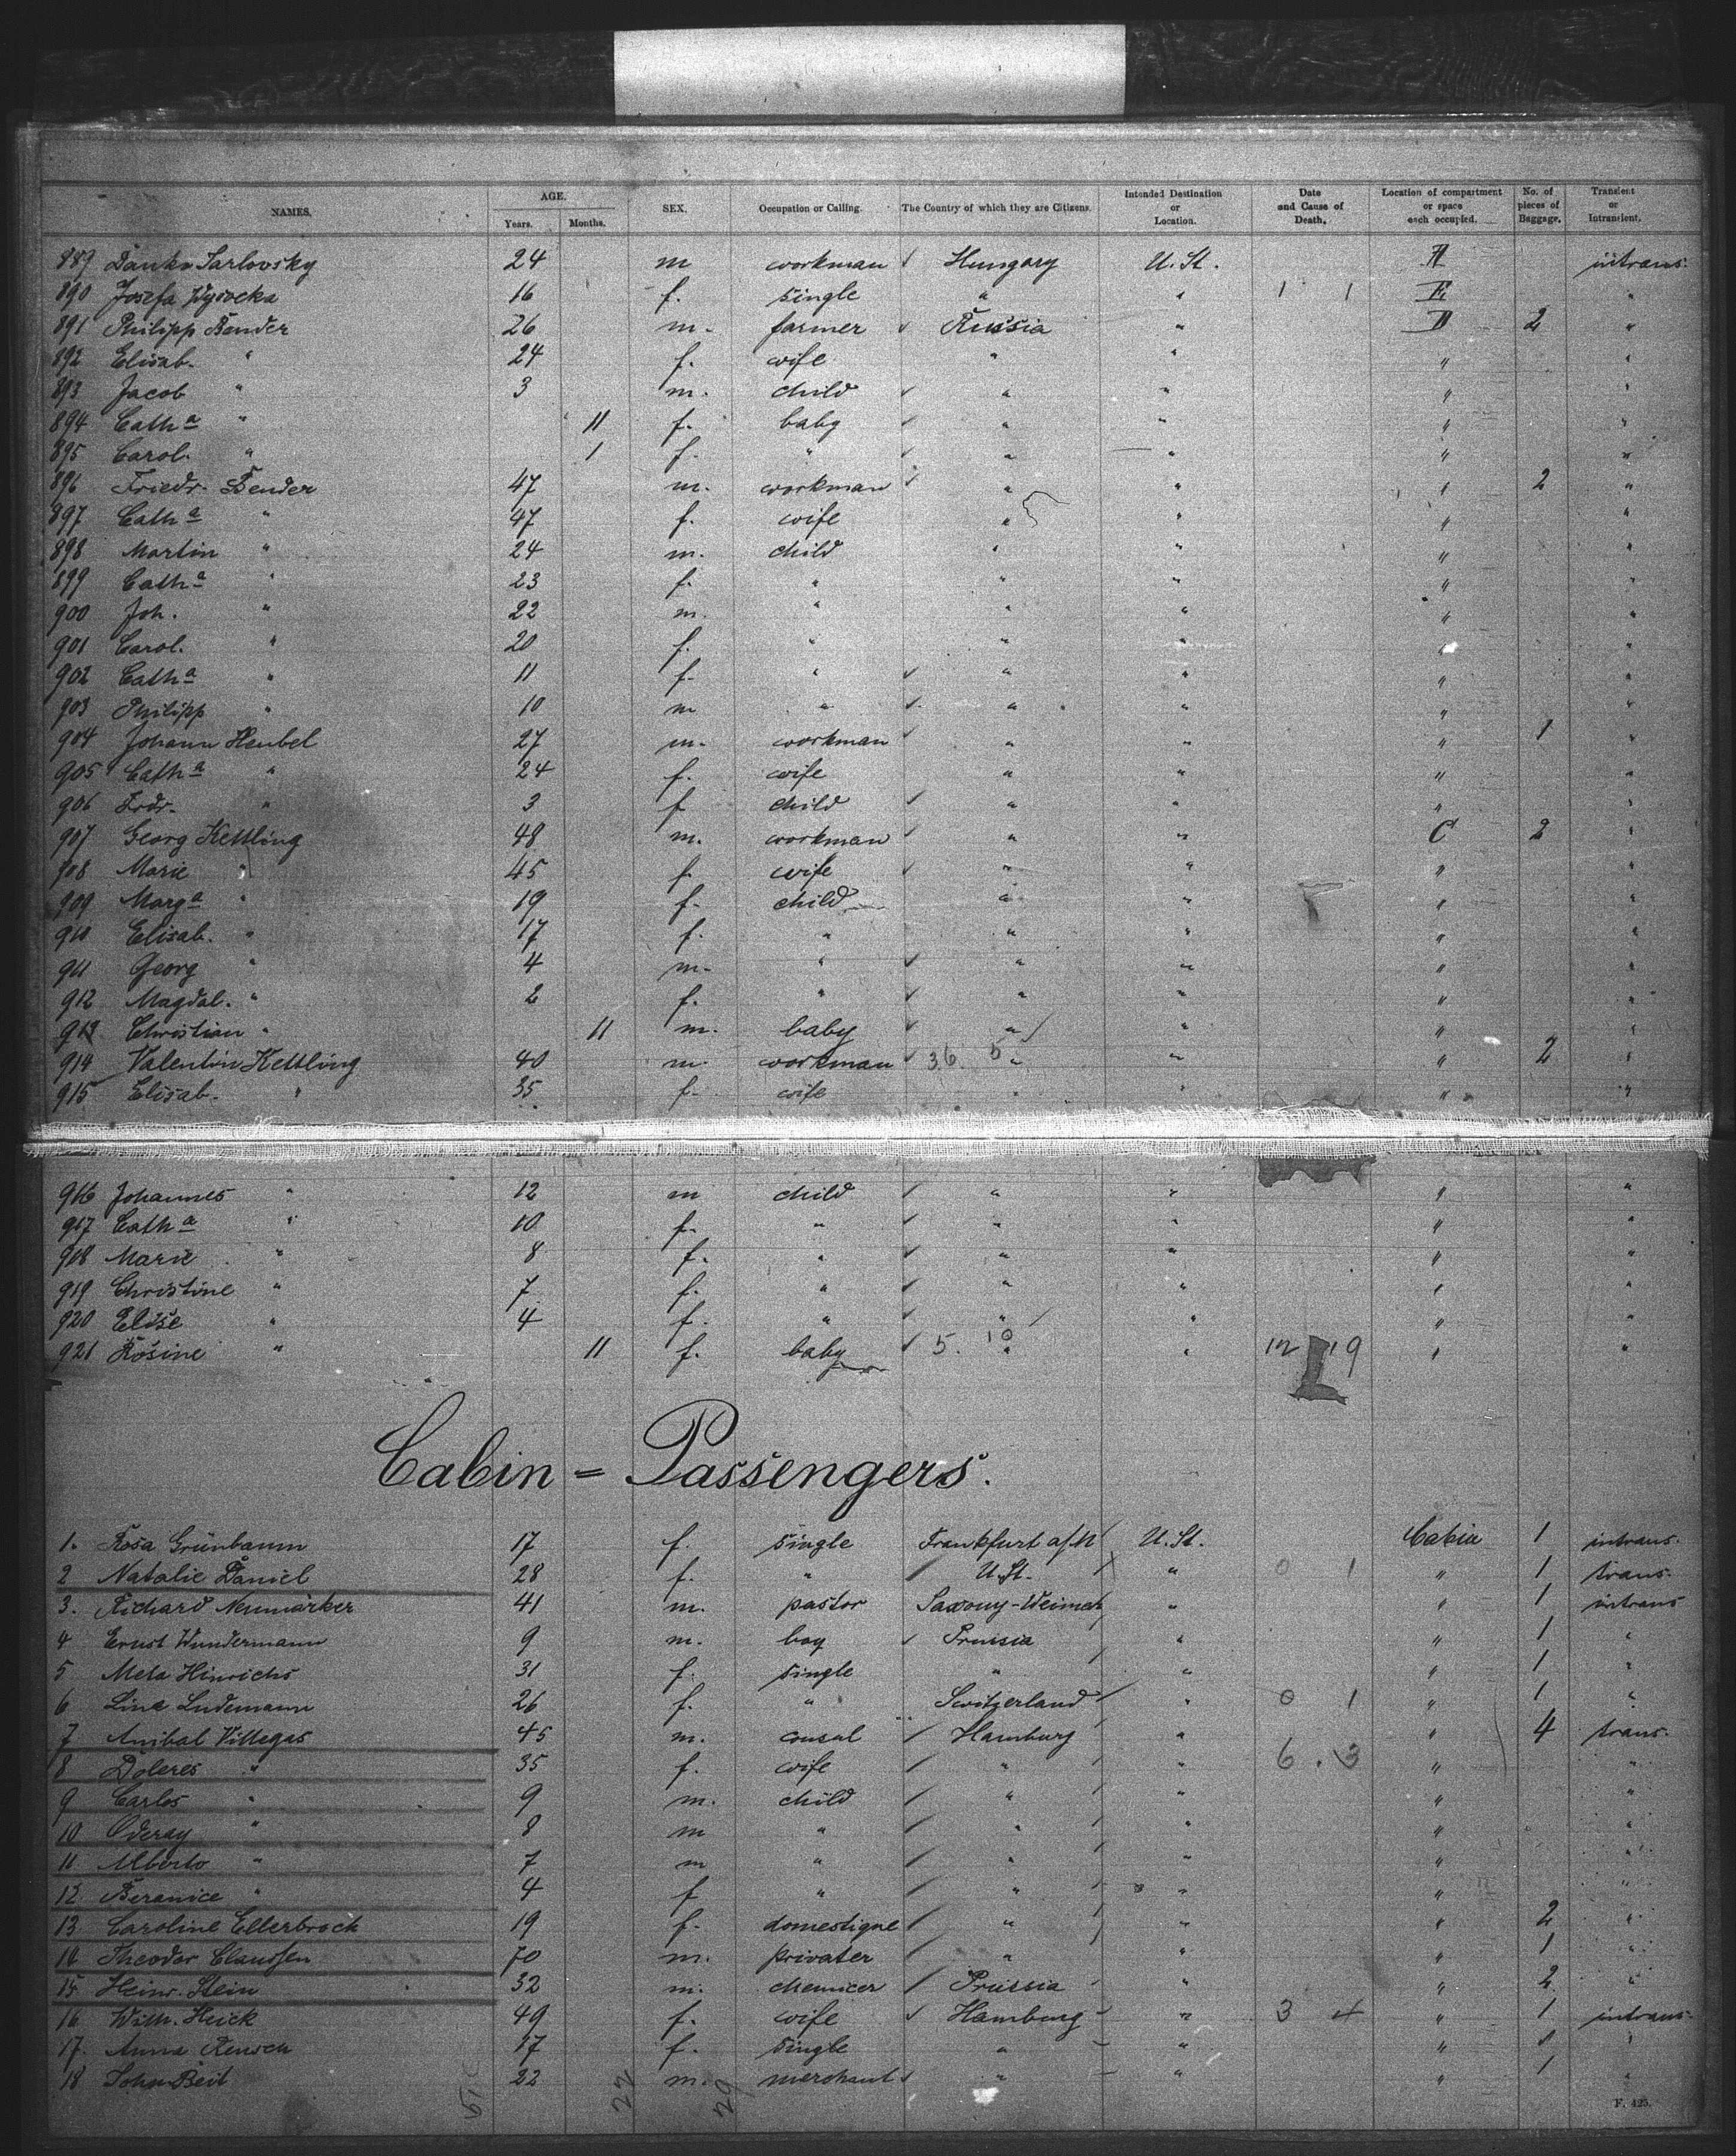 NAMES. AGE. Years. Months. SEX. Occupation or Calling. The Country of which they are Citizens. Intended Destination or Location. Date and Cause of Death. Location of compartment or space each occupied. No. of pieces of Baggage. Transient or Intransient.
889 Danko Sarlovsky 24 m workman ✓ Hungary U. St. A intrans.
890 Josefa Wysocka 16 f. single " " 1 1 E "
891 Philipp Bender 26 m. farmer ✓ Russia " D 2 "
892 Elisab. " 24 f. wife " " " "
893 Jacob " 3 m. child ✓ " " " "
894 Cath a " 11 f. baby ✓ " " " "
895 Carol. " 1 f. " ✓ " " " "
896 Friedr. Bender 47 m. workman ✓ " " " 2 "
897 Cath a " 47 f. wife " " " "
898 Martin " 24 m. child " " " "
899 Cath a " 23 f. " " " " "
900 Joh. " 22 m. " " " " "
901 Carol. " 20 f. " " " " "
902 Cath a " 11 f. " ✓ " " " "
903 Philipp " 10 m " ✓ " " " "
904 Johann Heubel 27 m. workman ✓ " " " 1 "
905 Cath a " 24 f. wife " " " "
906 Frdr. " 3 f child ✓ " " " "
907 Georg Kettling 48 m. workman ✓ " " C 2 "
908 Marie " 45 f. wife ✓ " " " "
909 Marg a " 19 f. child " " " "
910 Elisab. " 17 f. " " " " "
911 Georg " 4 m. " ✓ " " " "
912 Magdal. " 2 f. " ✓ " " " "
913 Christian " 11 m. baby ✓ " " " "
914 Valentin Kettling 40 m. workman ✓ 36 5 " " " 2 "
915 Elisab. " 35 f. wife " " " "
916 Johannes " 12 m child ✓ " " " "
917 Cath a " 10 f. " ✓ " " " "
918 Marie " 8 f. " ✓ " " " "
919 Christine " 7 f. " ✓ " " " "
920 Elise " 4 f. " ✓ " " " "
921 Rosine " 11 f. baby ✓ 5. 10 " " 12 19 " "
Cabin = Passengers.
1. Rosa Grünbaum 17 f. single Frankfurt a/M U. St. Cabin 1 intrans.
2 Natalie Daniel 28 f. " U. St. " 0 1 " 1 trans.
3. Richard Neumärker 41 m. pastor Saxony-Weimar " " 1 intrans
4 Ernst Wundermann 9 m. boy ✓ Prussia " " 1 "
5 Meta Hinrichs 31 f. single " " " 1 "
6 Line Ludemann 26 f. " Switzerland " 0 1 " 1 "
7 Anibal Villegas 45 m. consul Hamburg " " 4 trans.
8 Doleres " 35 f. wife " " 6 . 3 " "
9 Carlos " 9 m. child " " " "
10 Oderay " 8 m " " " " "
11 Alberto " 7 m " " " " "
12 Beranice " 4 f " " " " "
13. Caroline Ellerbrock 19 f. domestique " " " 2 "
14 Theodor Claussen 70 m. privater " " " 1 "
15 Heinr. Stein 32 m. chemicer Prussia " " 2 "
16 Wilh. Heick 49 f. wife ✓ Hamburg " 3 4 " 1 intrans.
17. Anna Rensch 17 f. single " " " 1 "
18 John Beit 22 m. merchant ✓ " " " 1 "
22 29
F. 425.